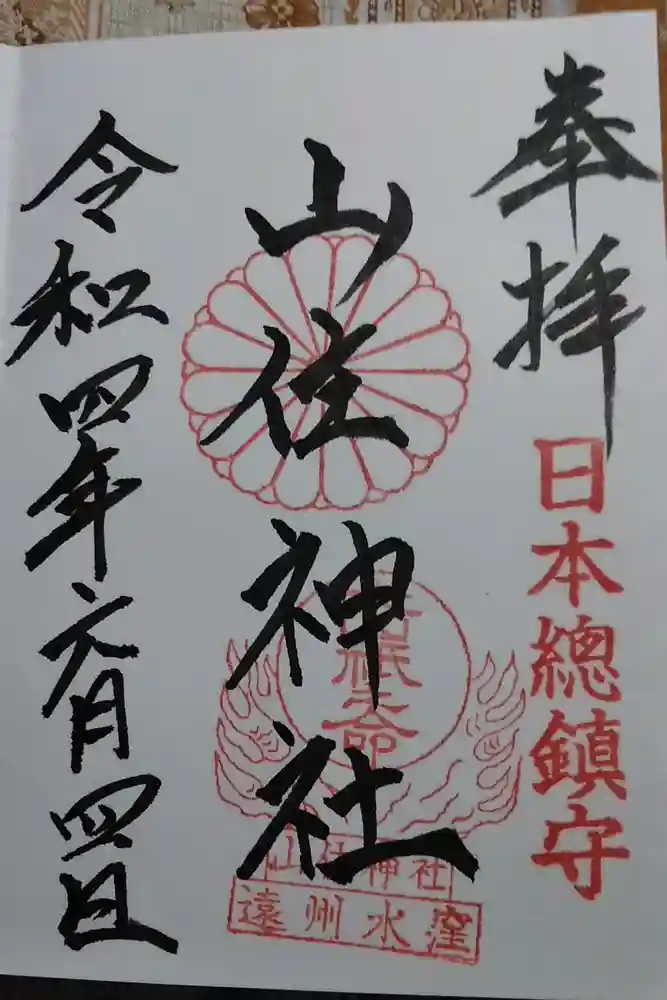 奉拝
日本總鎮守
山住神社
祇之命
山住神社
遠州水窪
令和四年六月四日